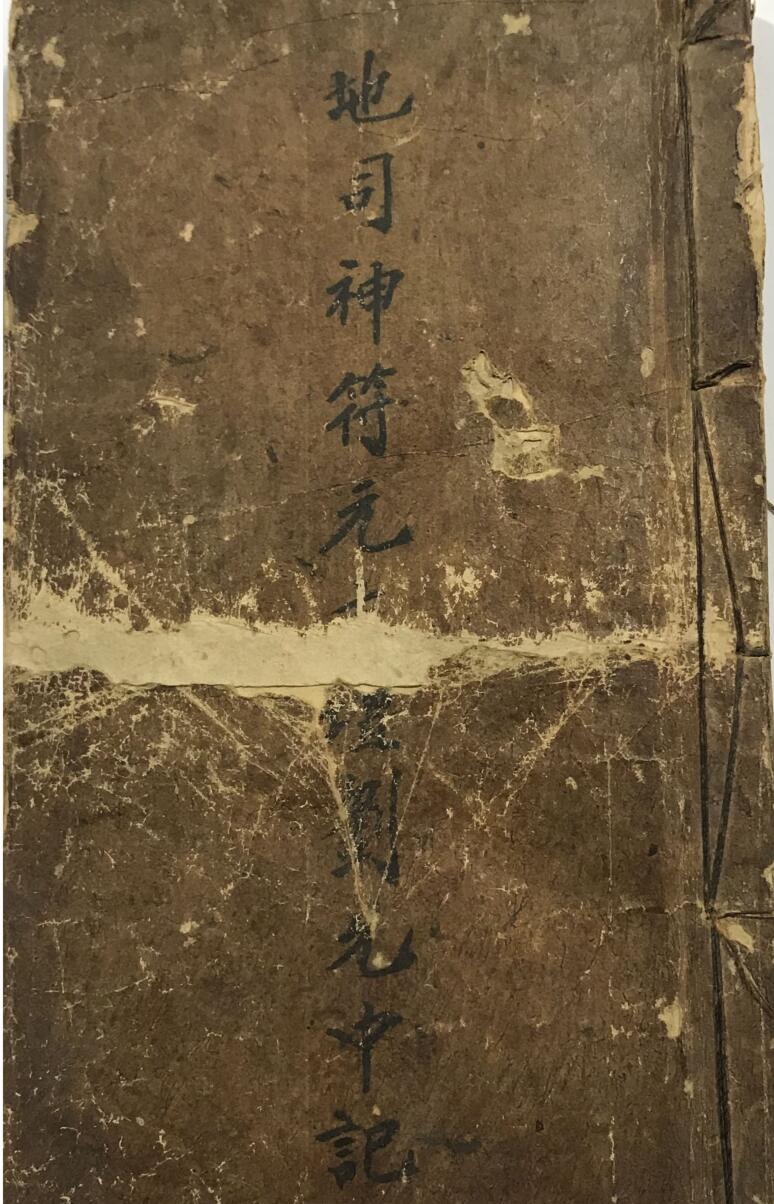 地司神符元
劉允中記